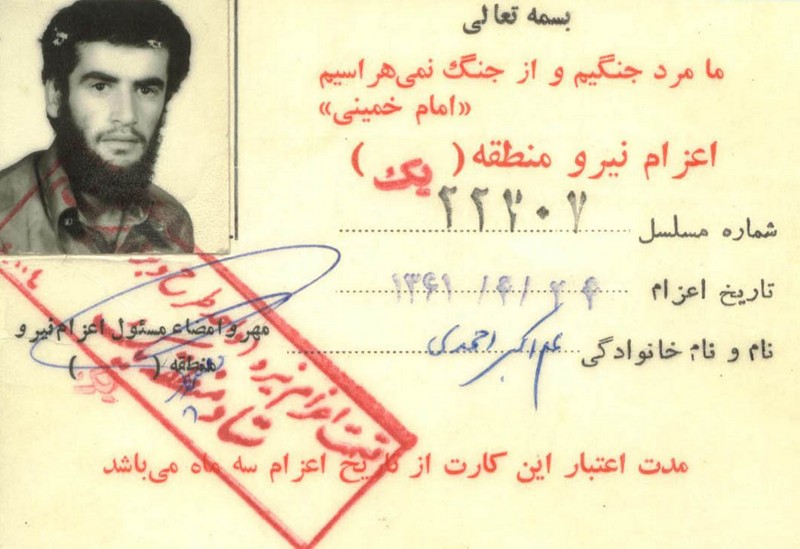 بسمه تعالی
ما مرد جنگیم و از جنگ نمی‌هراسیم
«امام خمینی»
اعزام نیرو منطقه ( یک )
شماره مسلسل ۲۲۷۰۷
تاریخ اعزام ۲۴ /۴/ ۱۳۶۱
نام و نام خانوادگی اکبر احمدی
مهر و امضاء مسئول اعزام نیرو
منطقه ( )
اعزام نیرو
مدت اعتبار این کارت از تاریخ اعزام سه ماه می‌باشد